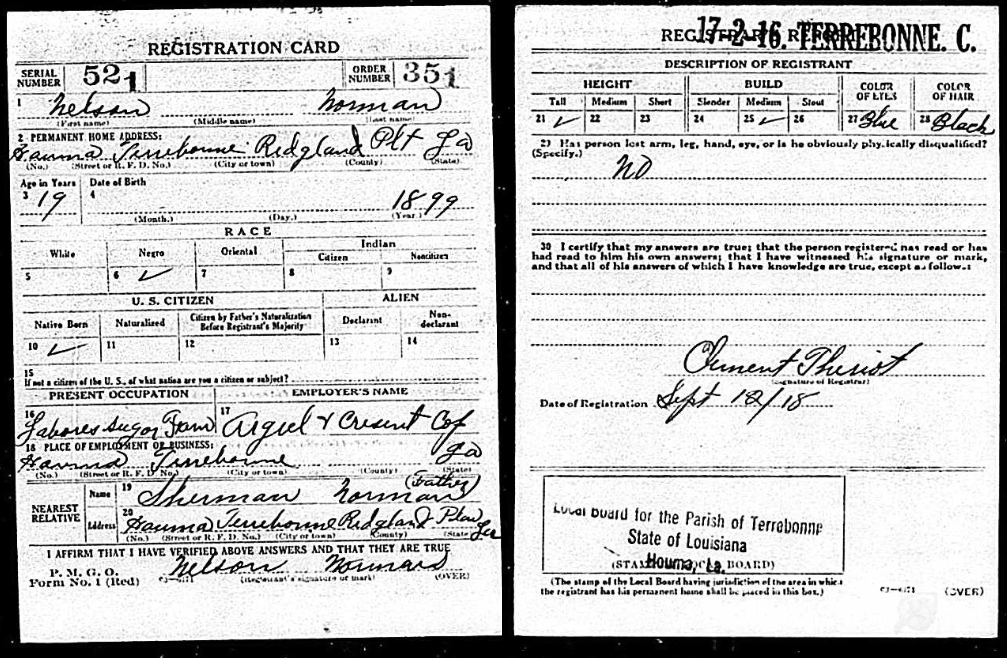 REGISTRATION CARD
SERIAL NUMBER 521 ORDER NUMBER 351
1 Nelson Norman
(First name) (Middle name) (Last name)
2 PERMANENT HOME ADDRESS:
Hauma Terrebonne Ridgland Plt La
(No.) (Street or R. F. D. No.) (City or town) (County) (State)
Age in Years Date of Birth
3 19 4 1899
(Month.) (Day.) (Year.)
RACE
White Negro Oriental Indian
Citizen Noncitizen
5 6 ✓ 7 8 9
U. S. CITIZEN ALIEN
Native Born Naturalized Citizen by Father's Naturalization Before Registrant's Majority Declarant Non-declarant
10 ✓ 11 12 13 14
15
If not a citizen of the U. S., of what nation are you a citizen or subject?
PRESENT OCCUPATION EMPLOYER'S NAME
16 Labores Sugar Farm 17 & Cresent
18 PLACE OF EMPLOYMENT OR BUSINESS:
Hauma Terrebonne La
(No.) (Street or R. F. D. No.) (City or town) (County) (State)
NEAREST RELATIVE Name 19 Sherman Norman (Father)
Address 20 Hauma Terrebonne Ridgland Plan La
(No.) (Street or R. F. D. No.) (City or town) (County) (State)
I AFFIRM THAT I HAVE VERIFIED ABOVE ANSWERS AND THAT THEY ARE TRUE
P. M. G. O.
Form No. 1 (Red) Nelson Norman
(Registrant's signature or mark) (OVER)
REGISTRAR'S REPORT
17-2-16. TERREBONNE. C.
DESCRIPTION OF REGISTRANT
HEIGHT BUILD COLOR OF EYES COLOR OF HAIR
Tall Medium Short Slender Medium Stout
21 ✓ 22 23 24 25 ✓ 26 27 Blue 28 Black
29 Has person lost arm, leg, hand, eye, or is he obviously physically disqualified?
(Specify.) NO
30 I certify that my answers are true; that the person registered has read or has
had read to him his own answers; that I have witnessed his signature or mark,
and that all of his answers of which I have knowledge are true, except as follows:
Clement Theriot
(Signature of Registrar)
Date of Registration Sept 12/18
Local Board for the Parish of Terrebonne
State of Louisiana
Houma, La.
(STAMP OF LOCAL BOARD)
(The stamp of the Local Board having jurisdiction of the area in which
the registrant has his permanent home shall be placed in this box.)
(OVER)